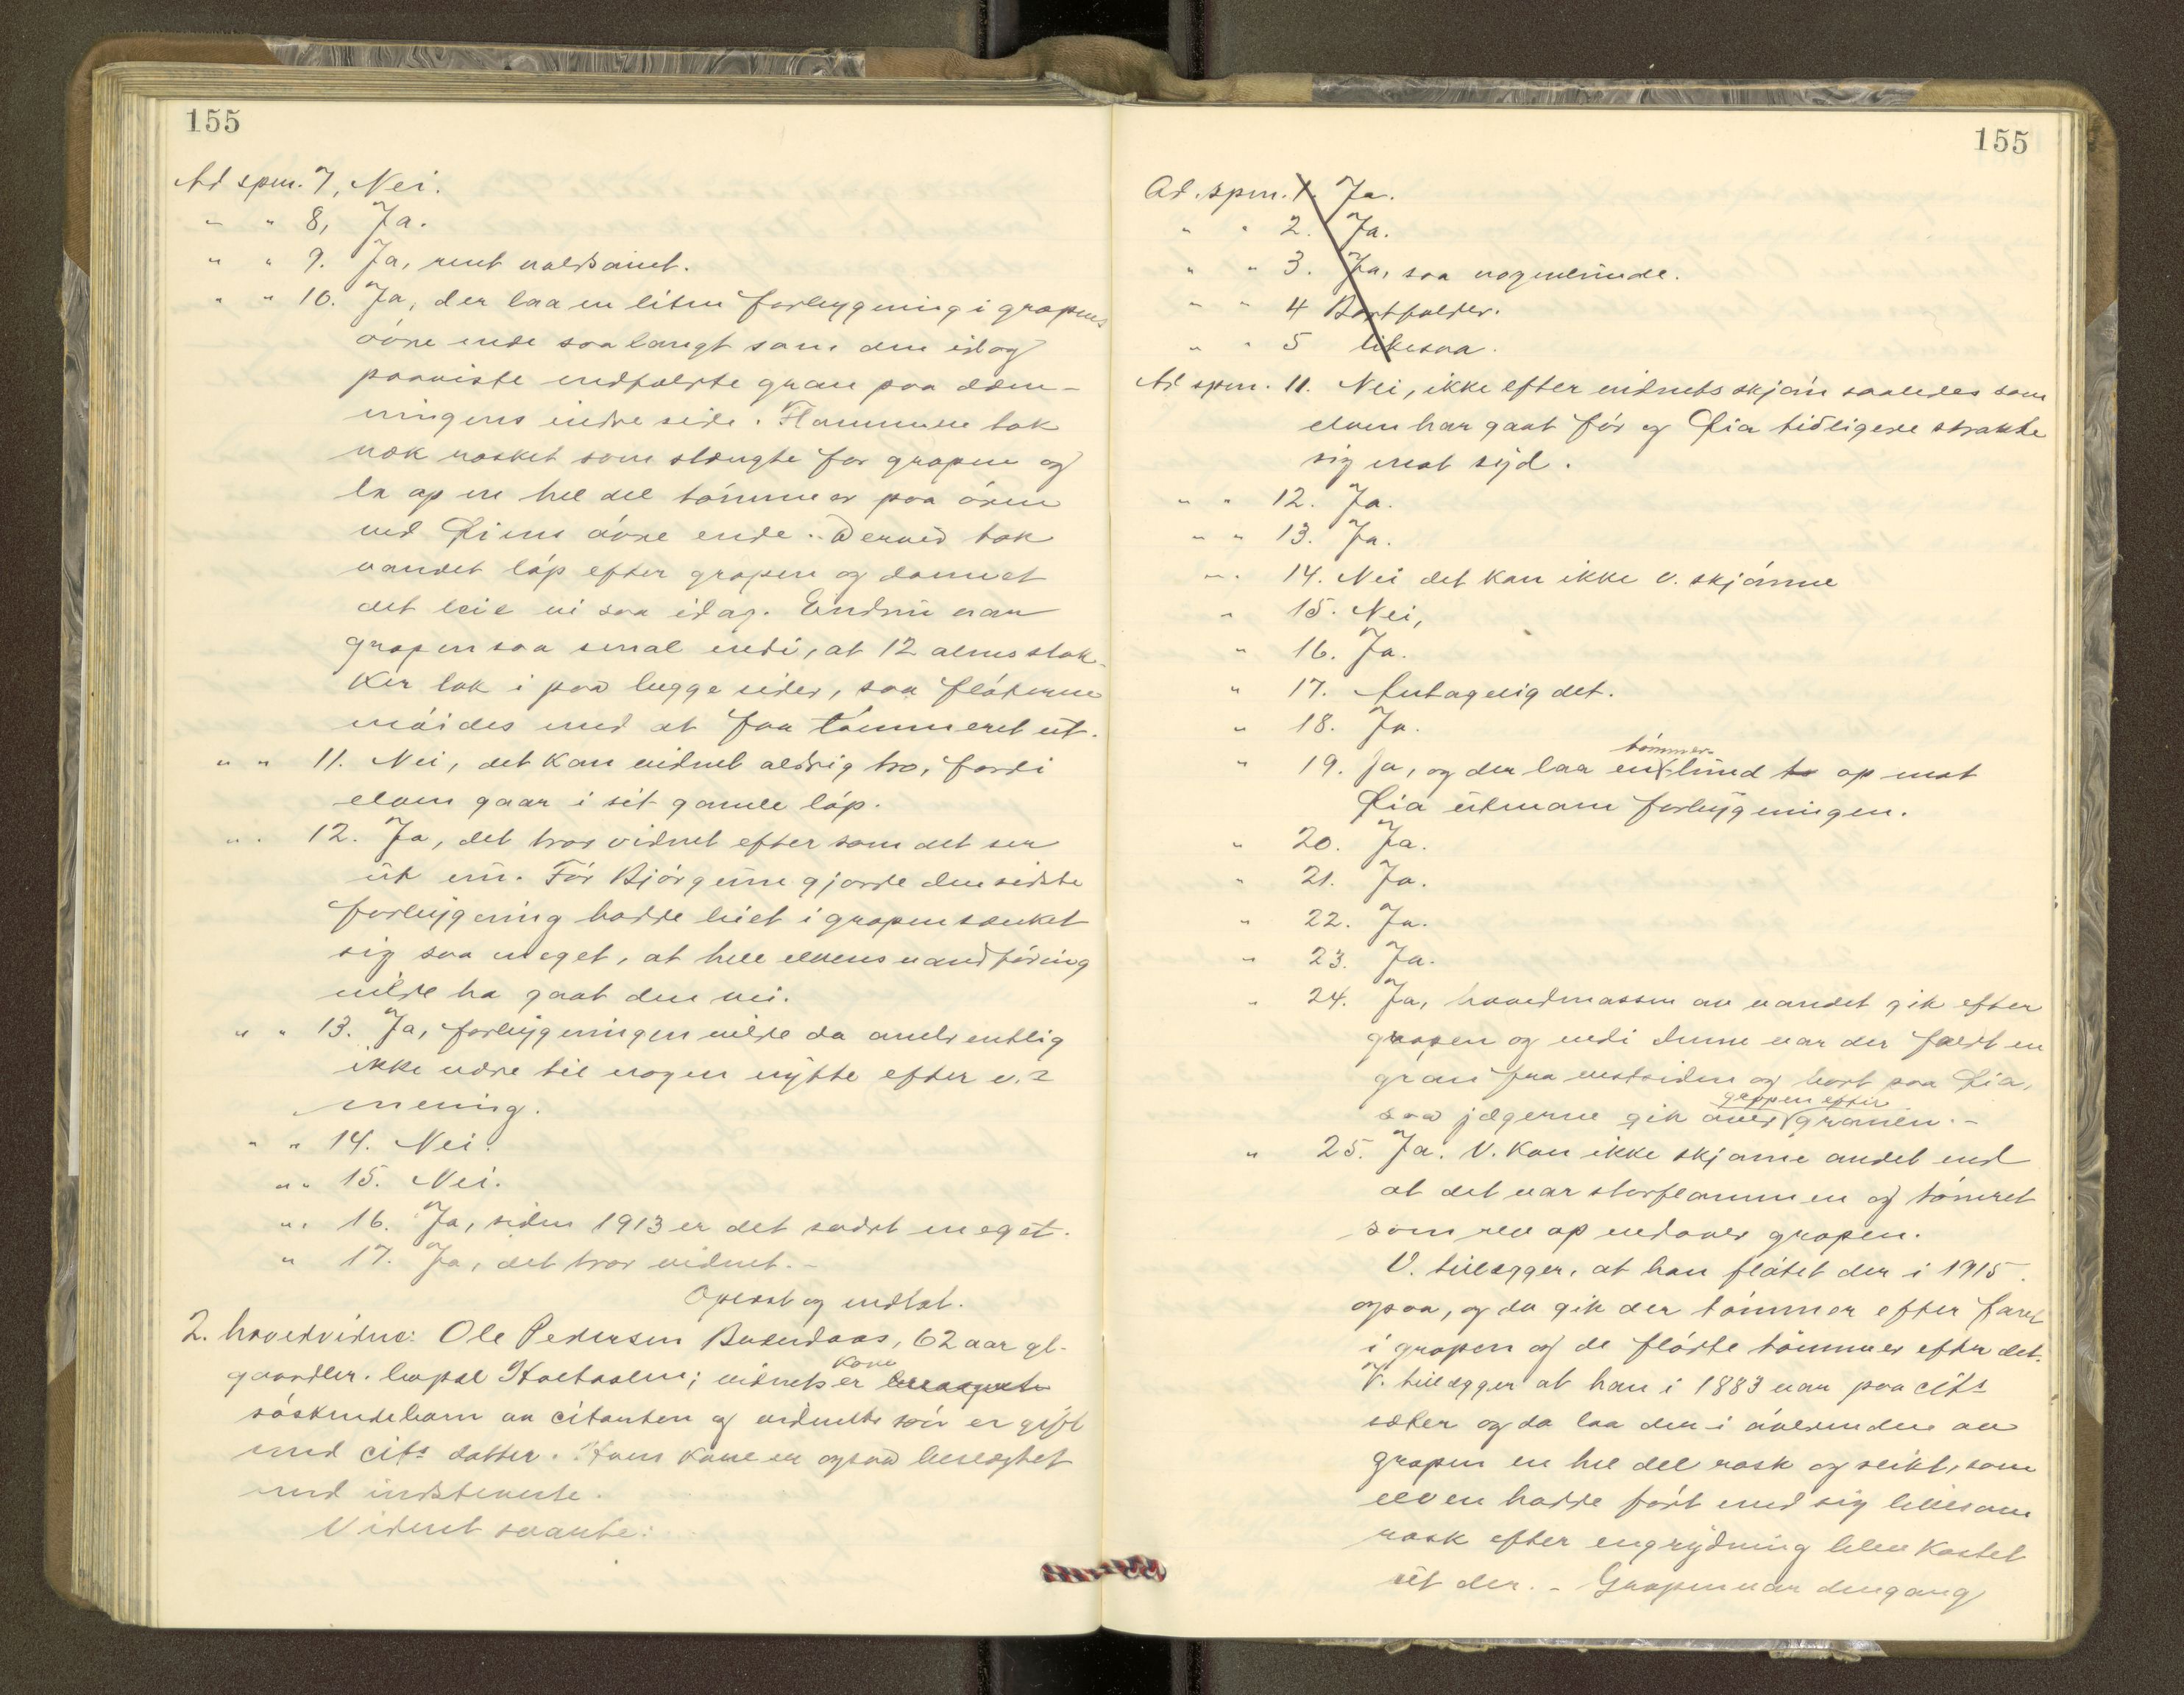 155
Ad spm. 7, Nei.
" " 8, Ja.
" " 9. Ja, rent voldsomt.
" " 10. Ja, der laa en liten forbygning i gropens
övre ende saa langt som den idag
paaviste indfældte gran paa dæm-
ningens indre side. Flommene tok
nok rasket som stængte for gropen og
la op en hel del tömmer paa ören
ved Liens övre ende. Derved tok
vandet löp efter gropen og dannet
det leie vi saa idag. Endnu var
gropen saa smal nedi, at 12 alens stok-
ker tok i paa begge sider, saa flöterne
möides med at faa tömmeret ut.
" " 11. Nei, det kan vidnet aldrig tro, fordi
elven gaar i sit gamle löp.
" " 12. Ja, det tror vidnet efter som det ser
ut nu. För Björgeüne gjorde den sidste
forbygning hadde leiet i gropen sænket
sig saa meget, at hele elvens vandföring
vilde ha gaat den vei.
" " 13. Ja, forbygningen vilde da andsentlig
ikke være til nogen nytte efter v.s
mening.
" " 14. Nei.
" " 15. Nei.
" " 16. Ja, siden 1913 er det sædet meget.
" 17. Ja, det tror vidnet. -
Oplæst og vedtat.
2. hovedvidne: Ole Pedersen Busendaas, 62 aar gl.
kone
gaardbr. bopæl Koltaalen; vidnets er
söskendebarn av citanten og vidnets sön er gift
med cits datter. Hans kone er ogsaa beslegtet
med indstevnte.
Vidnet svarte:
155
Ad. spm. 1. Ja.
" " 2. Ja.
" " 3. Ja, saa nogenlunde.
" " 4 Bortfalder.
" " 5 likesaa.
Ad spm. 11. Nei, ikke efter vidnets skjön saaledes som
elven har gaat för og Lia tidligere strakte
sig mot syd.
" " 12. Ja.
" " 13. Ja.
" " 14. Nei det kan ikke v. skjönne
" 15. Nei,
" 16. Ja.
" 17. Antagelig det.
" 18. Ja.
tömmer-
" 19. Ja, og der laa en lund to op mot
Lia utenom forbygningen.
" 20. Ja.
" 21. Ja.
" 22. Ja.
" 23. Ja.
" 24. Ja, hovedmassen av vandet gik efter
gropen og nedi denne var der fældt en
gran fra vestsiden og bort paa Lia,
gropen efter
saa jægerne gik over granen. -
" 25. Ja. V. kan ikke skjönne andet end
at det var storflommen og tömret
som rev op nedover gropen.
V. tillægger, at han flötet der i 1915
ogsaa, og da gik der tömmer efter faret
i gropen og de flötte tömmer efter det.
V. tillægger at han i 1883 var paa cits
sæter og da laa der i överenden av
gropen en hel del rask og slikt, som
elven hadde fört med sig likesom
rask efter engrydning blev kastet
ut der. - Gropen var dengang